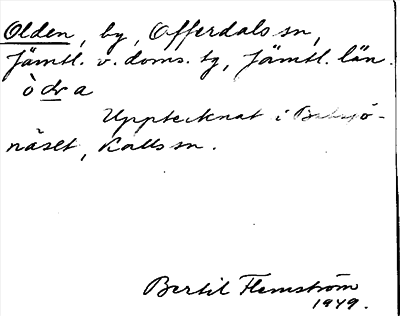 Olden, by, Offerdals sn,
Jämtl. v. doms. tg, Jämtl. län.
òdra
Upptecknat i
näset, Kalls sn.
Bertil Flemström
1949.